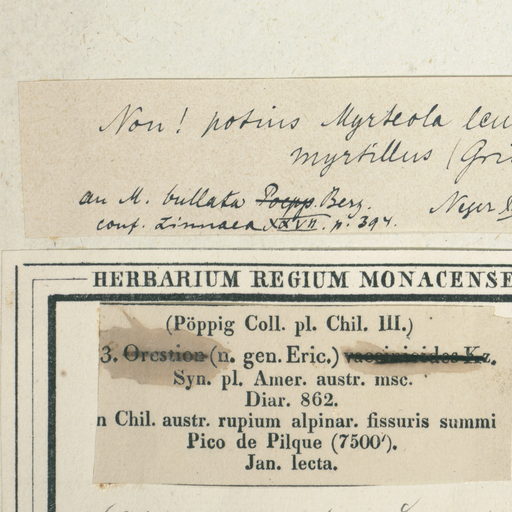 Non! potius Myrteola leu
myrtillus (Gri
an M. bullata Poepp. Berg. Neger
conf. Linnaea XXVII. p. 394.
HERBARIUM REGIUM MONACENSE
(Pöppig Coll. pl. Chil. III.)
3. Orestion (n. gen. Eric.) vaccinioides Kz.
Syn. pl. Amer. austr. msc.
Diar. 862.
n Chil. austr. rupium alpinar. fissuris summi
Pico de Pilque (7500').
Jan. lecta.